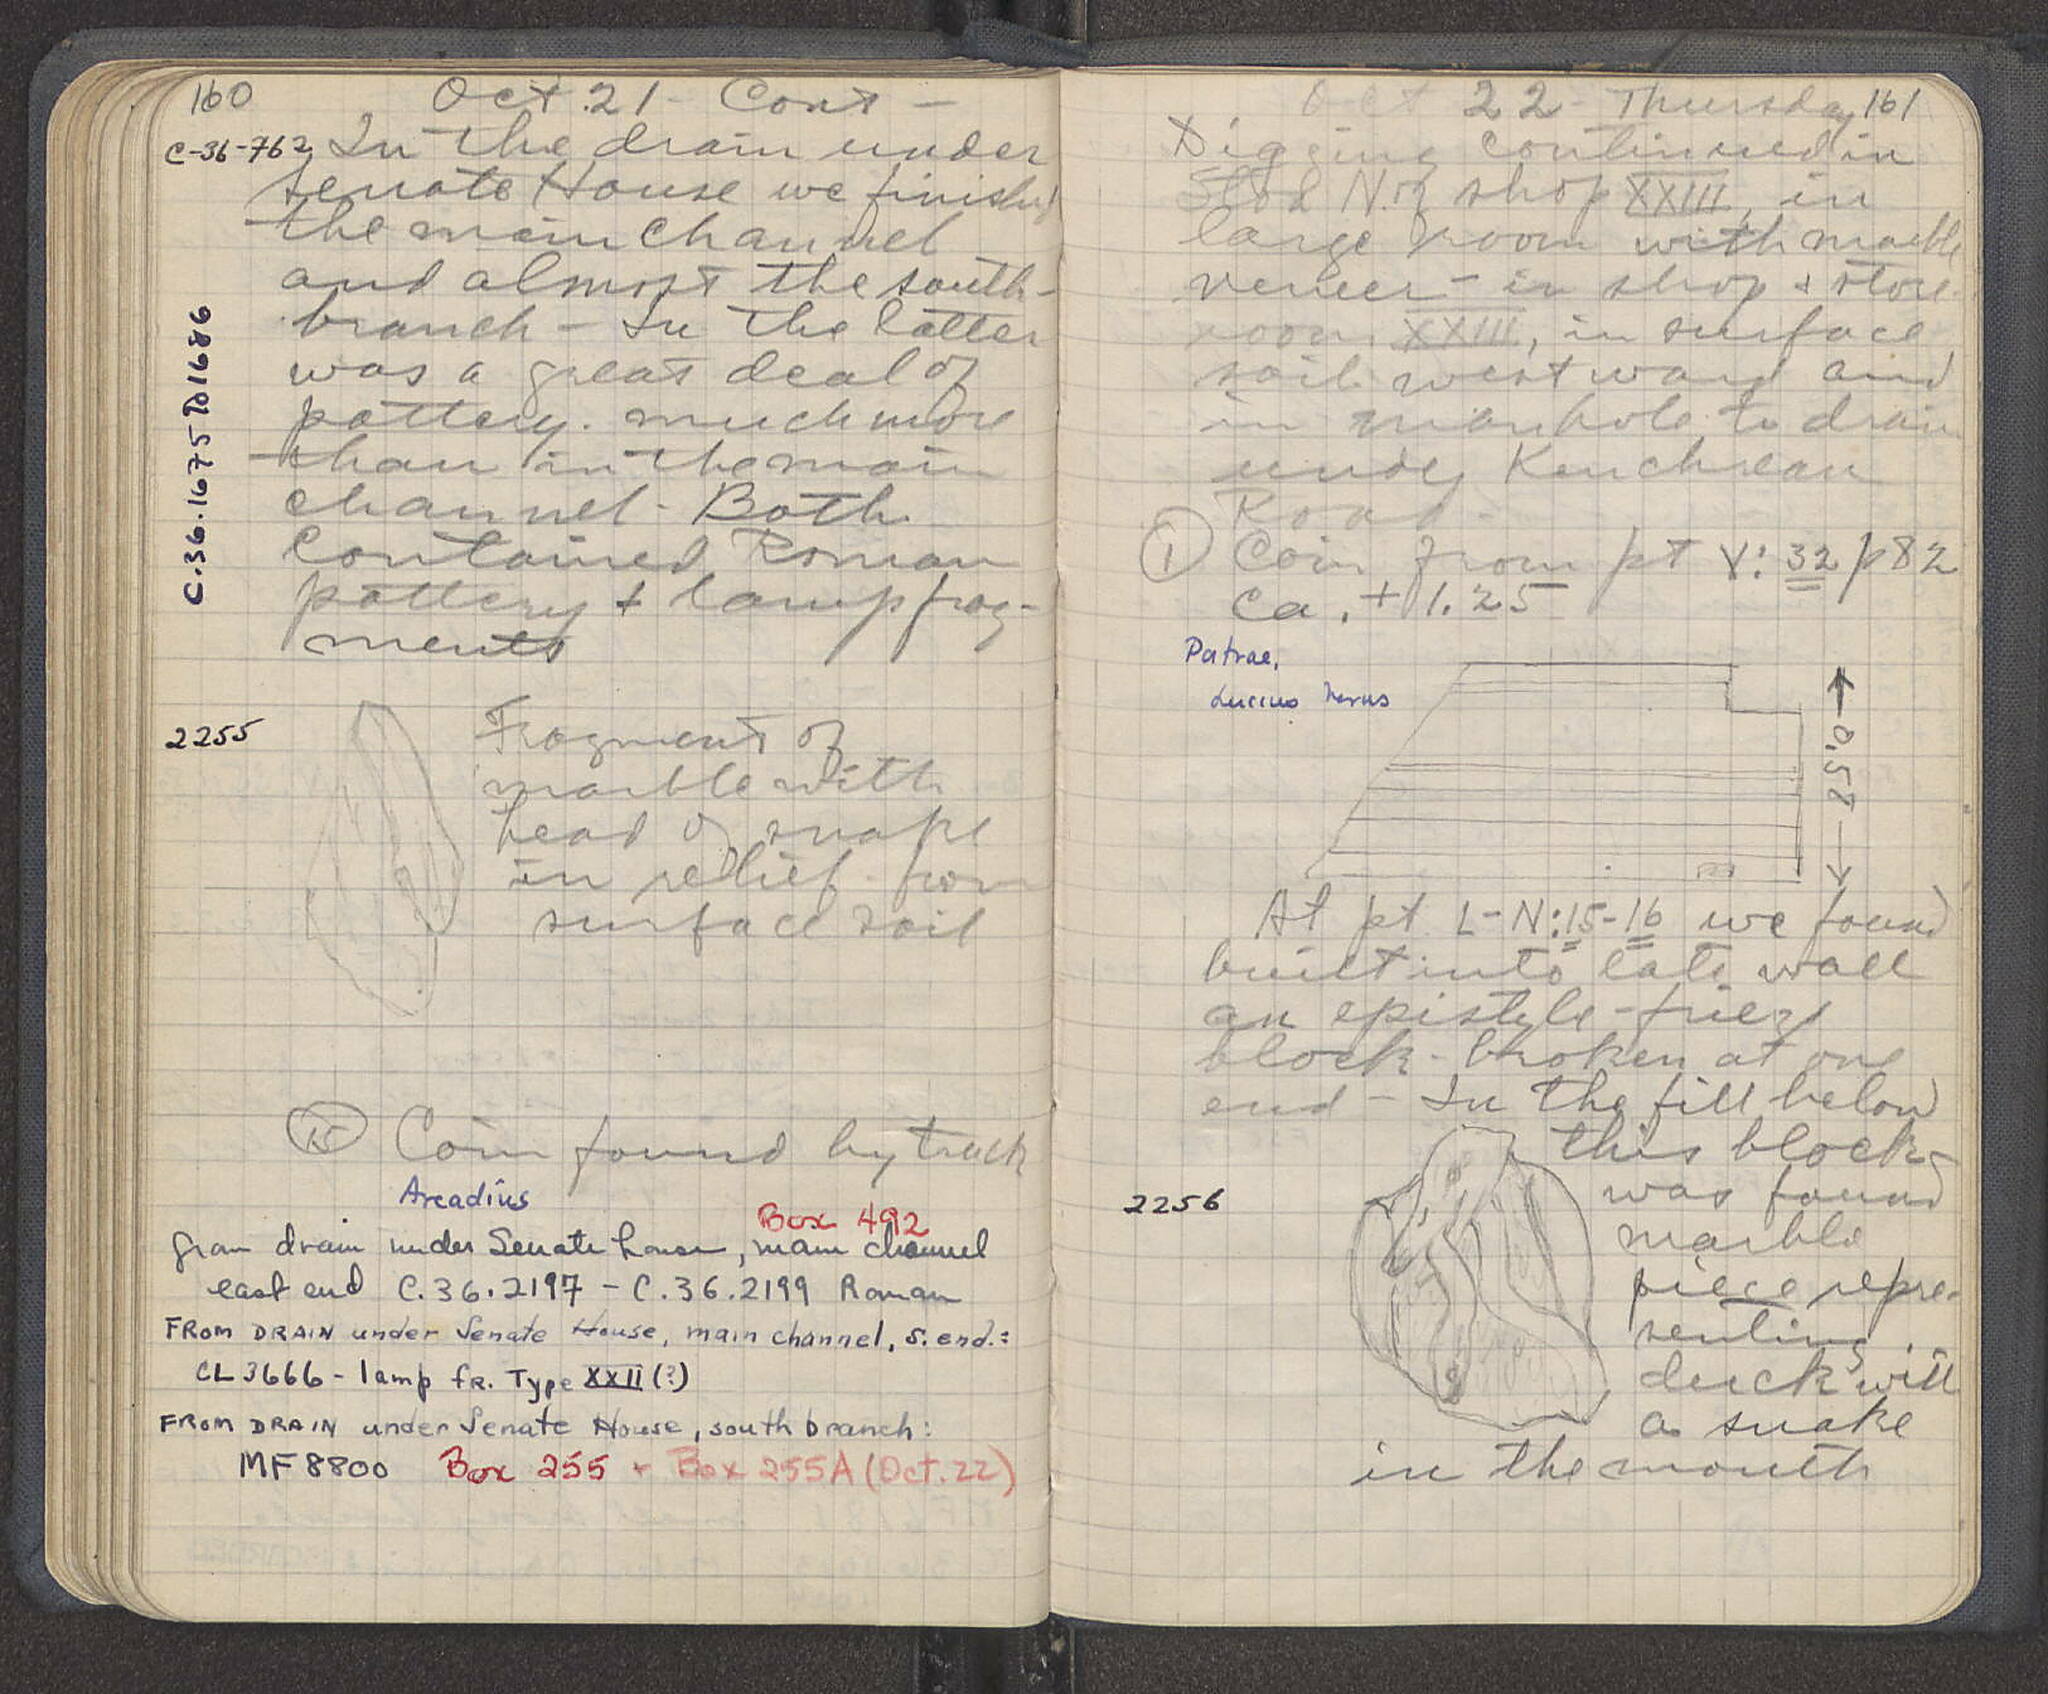 160 Oct. 21 - Cont -
C-36-762 In the drain under
Senate House we finished
the main channel
and almost the south-
branch - In the latter
was a great deal of
pottery. much more
than in the main
channel - Both
contained Roman
pottery + lamp frag-
ments
C.36.1675 TO 1686
2255
Fragment of
marble with
head of snake
in relief from
surface soil
15 Coin found by track
Arcadius
Box 492
from drain under Senate house, main channel
east end C.36.2197 - C.36.2199 Roman
FROM DRAIN under Senate House, main channel, S. end.:
CL 3666 - lamp fr. Type XXII (?)
FROM DRAIN under Senate House, south branch:
MF 8800 Box 255 + Box 255A (Oct. 22)
Oct 22 - Thursday 161
Digging continued in
Stoa N. of shop XXIII, in
large room with marble
veneer - in shop + store
room XXIII, in surface
soil westward and
in manhole to drain
under Kenchrean
Road -
1 Coin from pt V:32 p82
ca. + 1.25
Patrae,
Lucius Verus
0,58
At pt L-N:15-16 we found
built into late wall
an epistyle-frieze
block - broken at one
end - In the fill below
this block
was found
marble
piece repre-
senting
duck with
a snake
in the mouth
2256